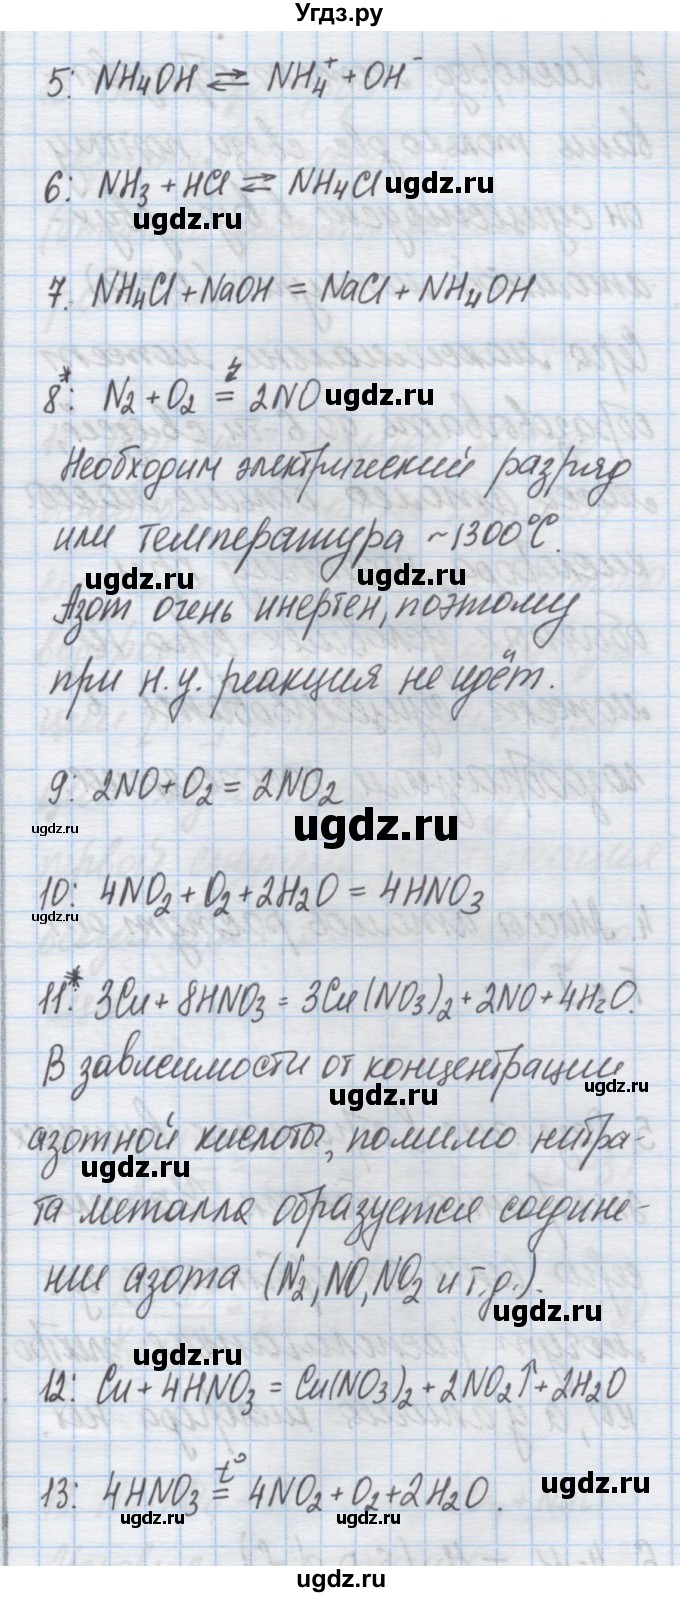 Угдз.ру
5: NH₄OH ⇌ NH₄⁺ + OH⁻
6: NH₃ + HCl ⇌ NH₄Cl ugdz.ru
ugdz.ru
7. NH₄Cl + NaOH = NaCl + NH₄OH
8*: N₂ + O₂ =⚡ 2NO ugdz.ru
Необходим электрический разряд
или температура ~1300°C.
ugdz.ru ugdz.ru
Азот очень инертен, поэтому
при н.у. реакция не идёт.
9: 2NO + O₂ = 2NO₂
ugdz.ru ugdz.ru
10: 4NO₂ + O₂ + 2H₂O = 4HNO₃
ugdz.ru
11*: 3Cu + 8HNO₃ = 3Cu(NO₃)₂ + 2NO + 4H₂O.
В зависимости от концентрации
ugdz.ru ugdz.ru
азотной кислоты, помимо нитра-
ugdz.ru
та металла образуется соедине-
ние азота (N₂, NO, NO₂ и т.д.).
ugdz.ru
ugdz.ru
12: Cu + 4HNO₃ = Cu(NO₃)₂ + 2NO₂↑ + 2H₂O
13: 4HNO₃ =t° 4NO₂ + O₂ + 2H₂O. ugdz.ru
ugdz.ru ugdz.ru
ugdz.ru